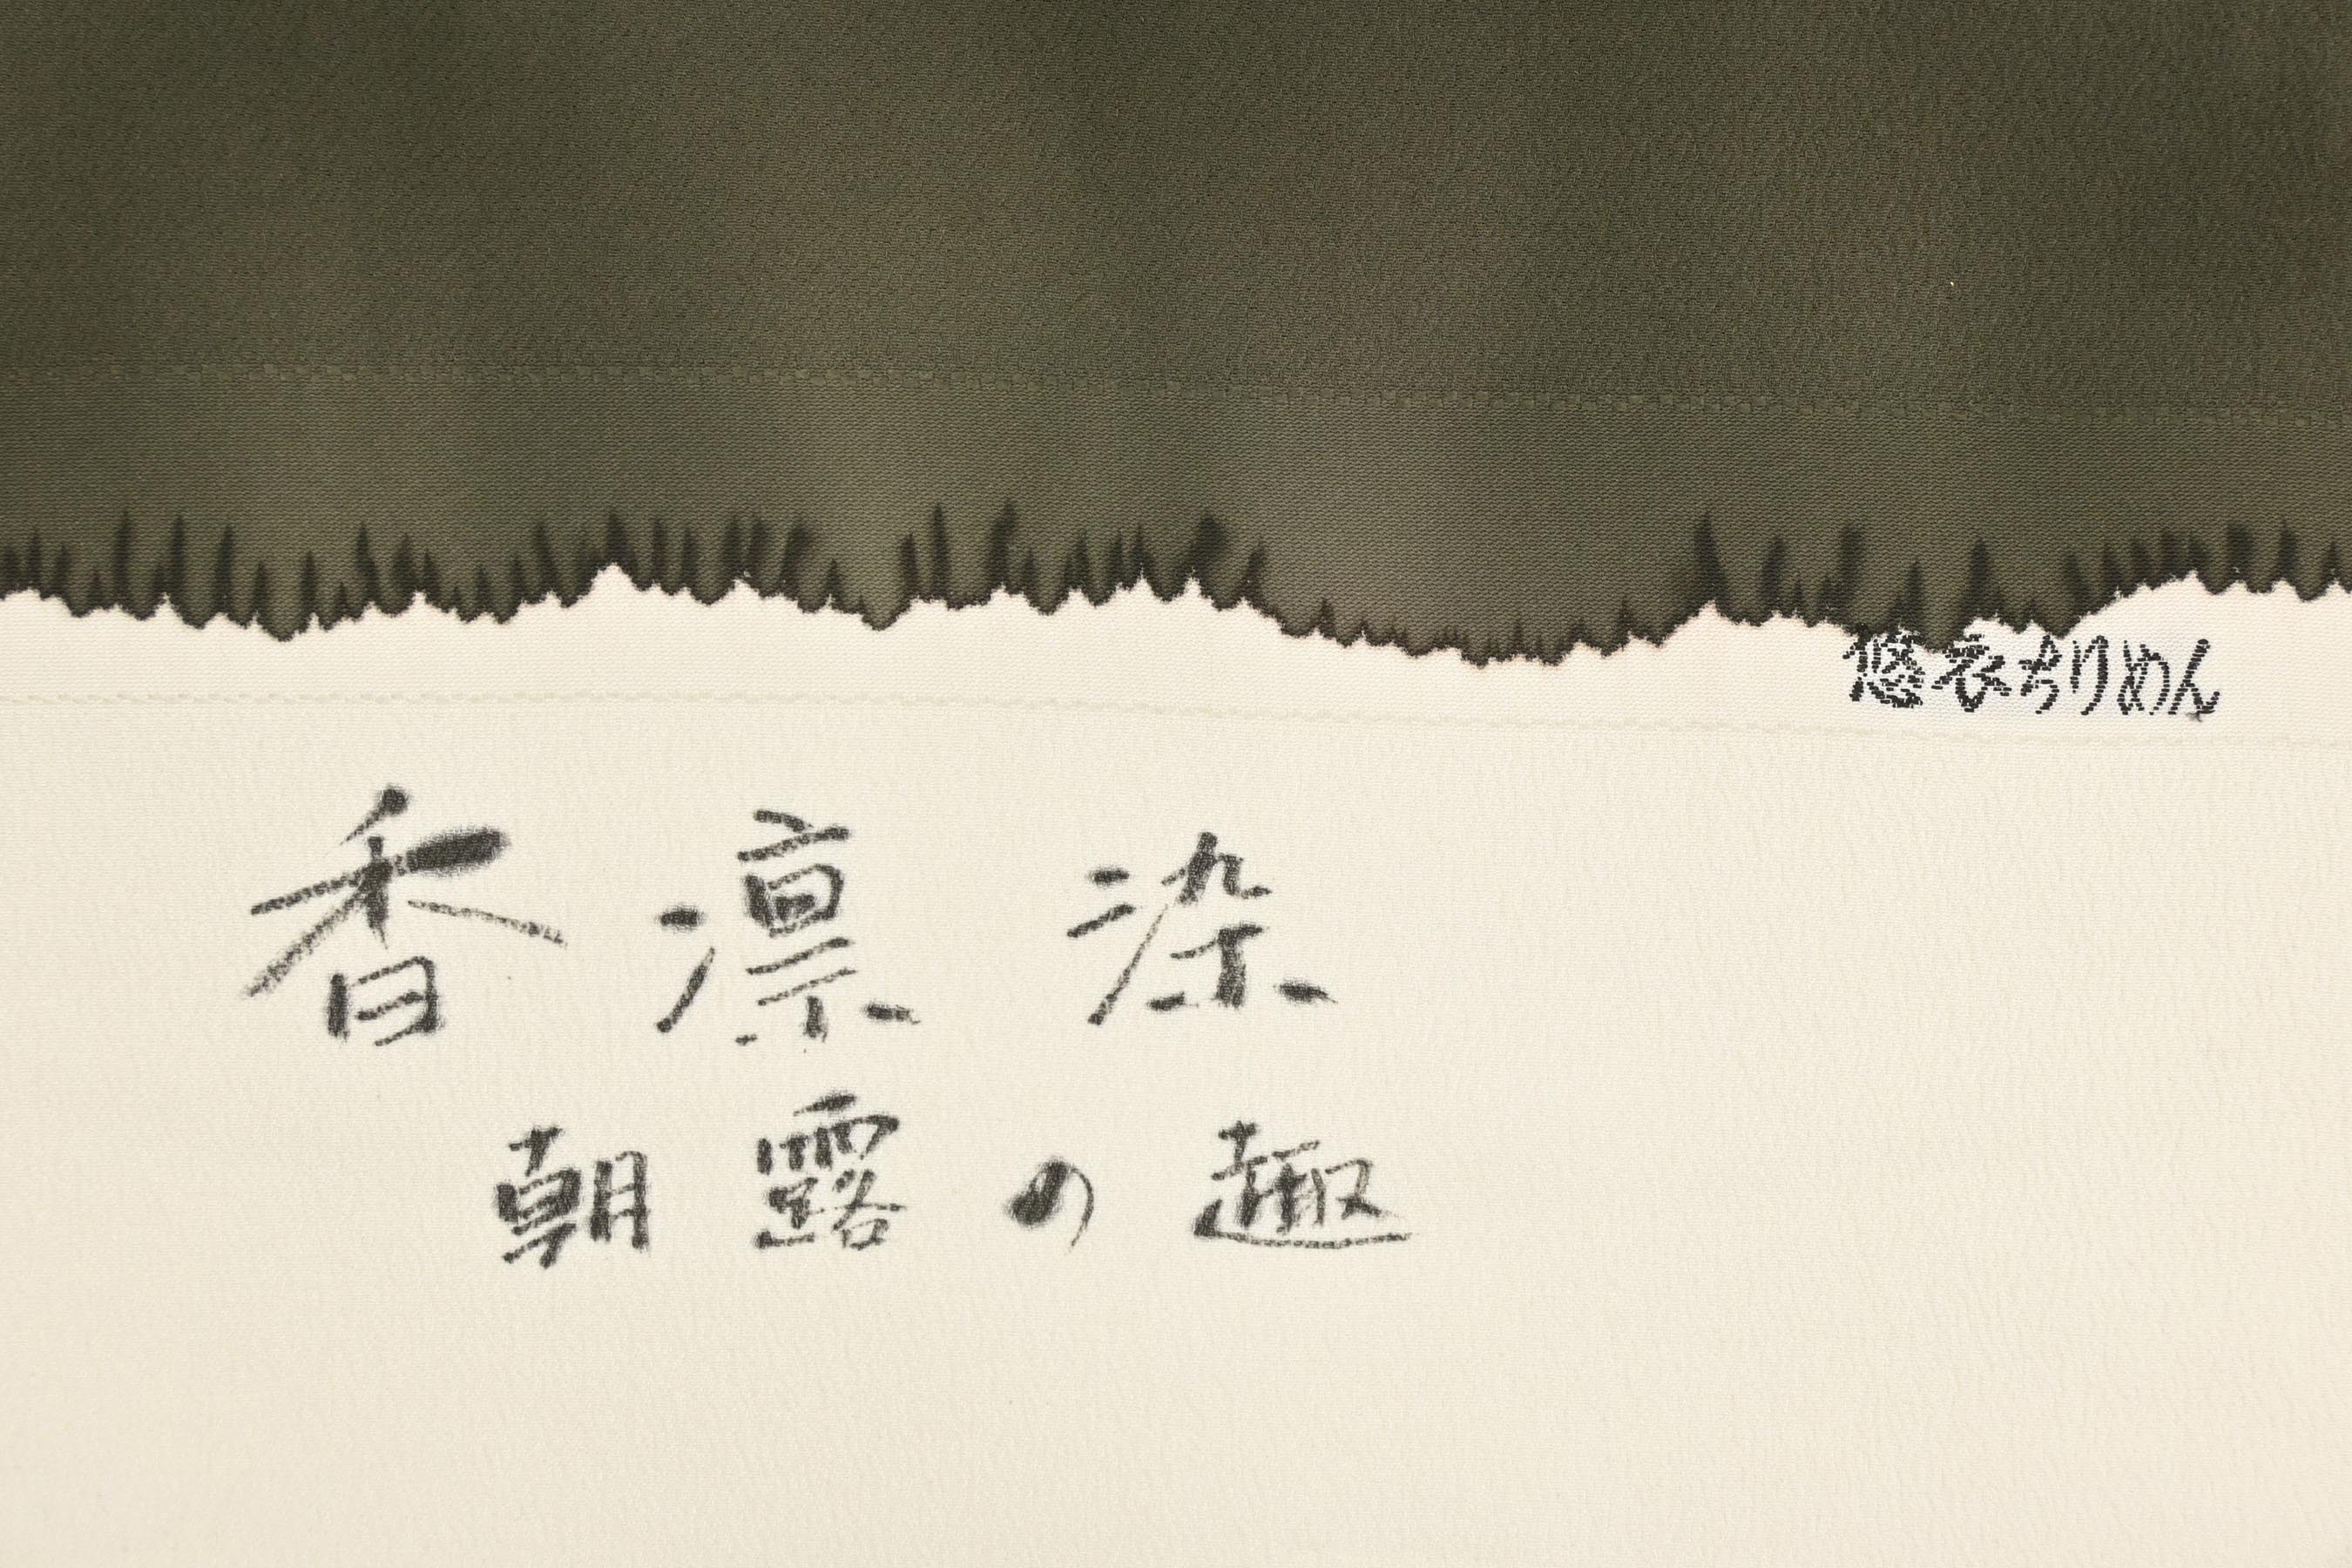 悠衣ちりめん
香凛染
朝露の趣